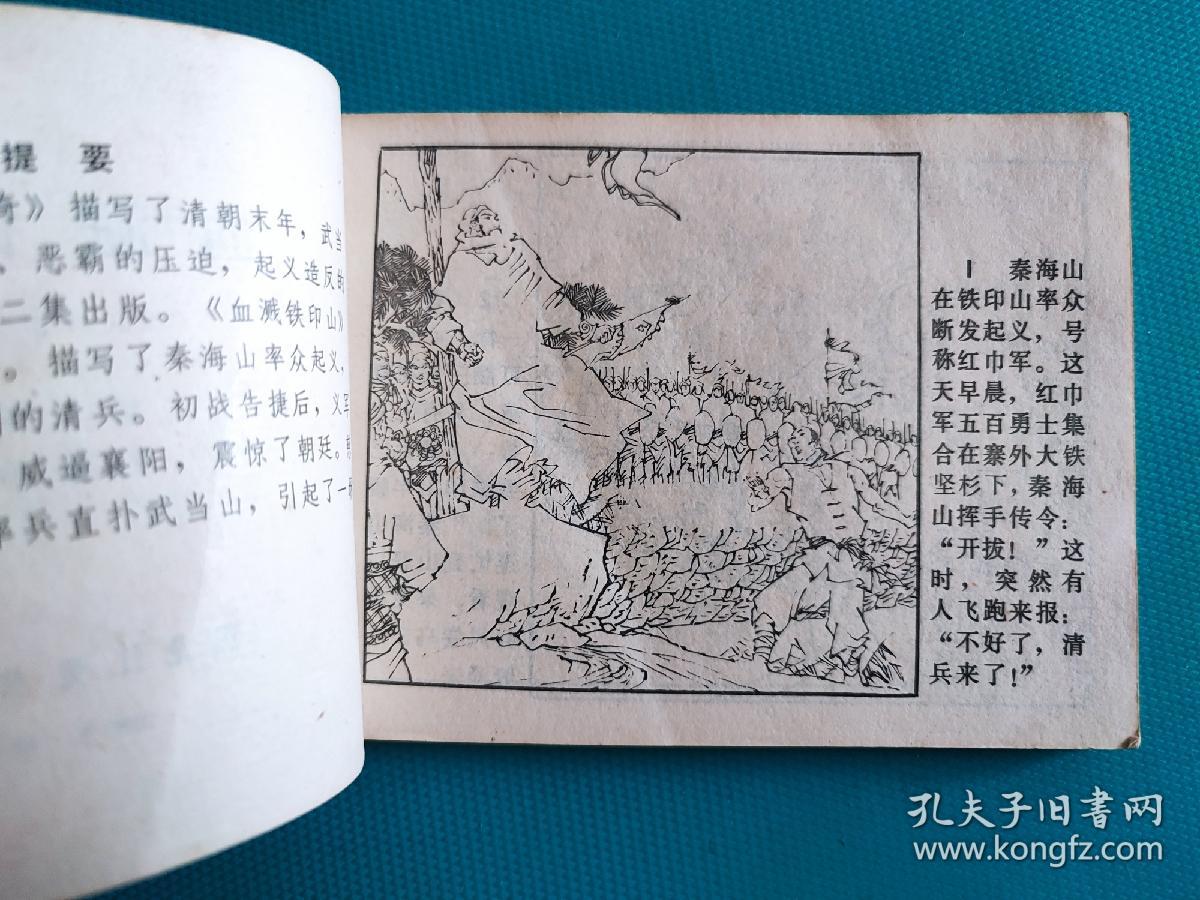 提 要
奇》描写了清朝末年，武当
、恶霸的压迫，起义造反的
二集出版。《血溅铁印山》
。描写了秦海山率众起义，
的清兵。初战告捷后，义军
威逼襄阳，震惊了朝廷。
率兵直扑武当山，引起了一
1 秦海山
在铁印山率众
断发起义，号
称红巾军。这
天早晨，红巾
军五百勇士集
合在寨外大铁
坚杉下，秦海
山挥手传令：
“开拔！”这
时，突然有
人飞跑来报：
“不好了，清
兵来了！”
孔夫子旧書网
www.kongfz.com